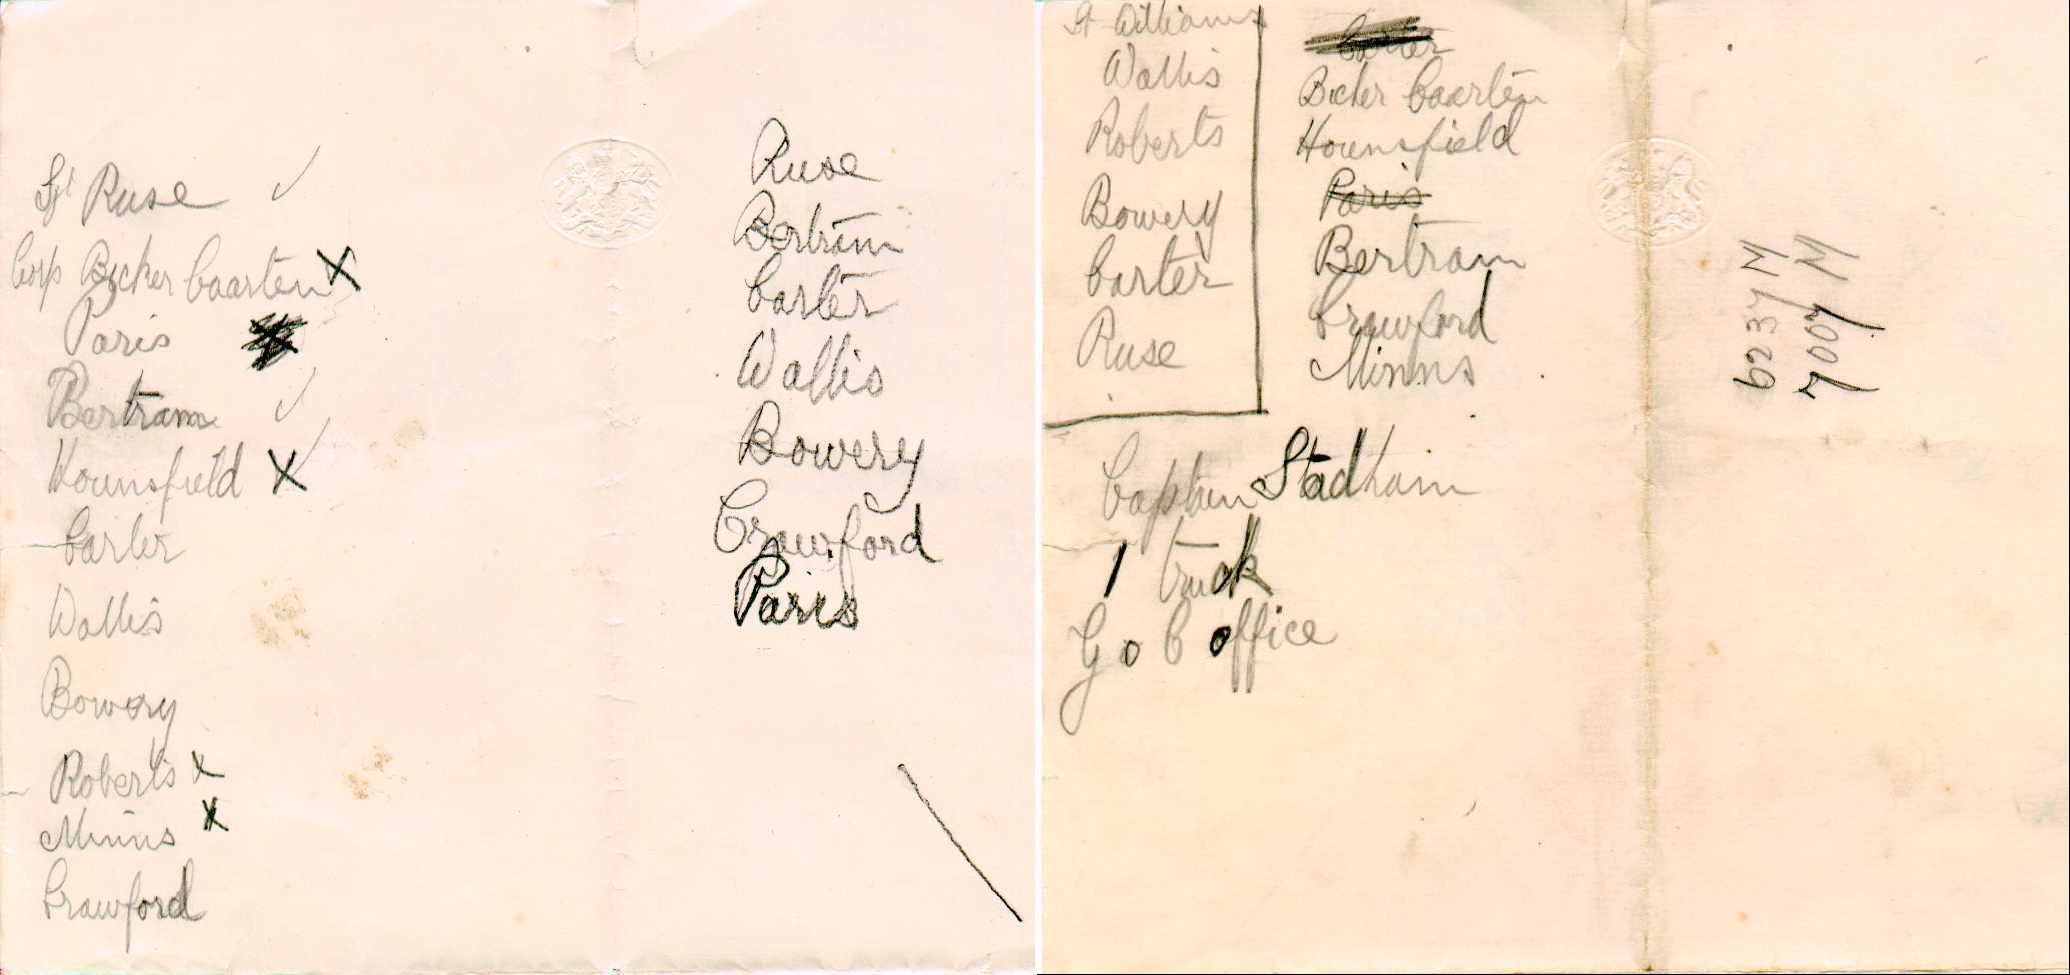 Sgt Ruse ✓
Corp Bicker Caarten X
Paris
Bertram ✓
Hounsfield X
Carter
Wallis
Bowery
Roberts x
Minns x
Crawford
Ruse
Bertram
Carter
Wallis
Bowery
Crawford
Paris
St Williams
Wallis
Roberts
Bowery
Carter
Ruse
Carter
Bicker Caarten
Hounsfield
Paris
Bertram
Crawford
Minns
Captain Stadham
1 truck
G o C office
6237 M
7007 M